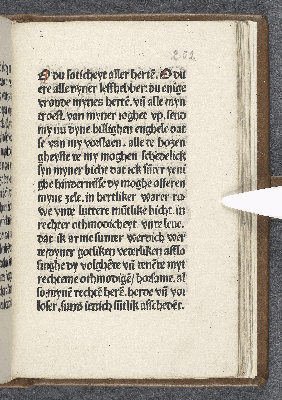 202
O du soticheyt aller hertē. O du
ere alle myner leffhebber: du enige
vroude mynes hertē. vñ alle myn
troest. van myner ioghet vp. send
my nu dyne hillighen enghele dat
se van my vorslaen. alle de bozen
gheyste de my moghen schedelick
syn myner bicht dat ick sūder yeni
ghe hindernisse dy moghe offeren
myne zele. in hertliker warer ro-
we vnde luttere mūtlike bicht. in
rechter othmodicheyt vnde leue.
dat ik arme sunner werdich wer
de dyner gotliken veterliken
singhe dy volghēde vñ denēde myt
rechteme othmodigē / horsame. al
so mynē rechtē herē. herde vñ vor
loser. sund